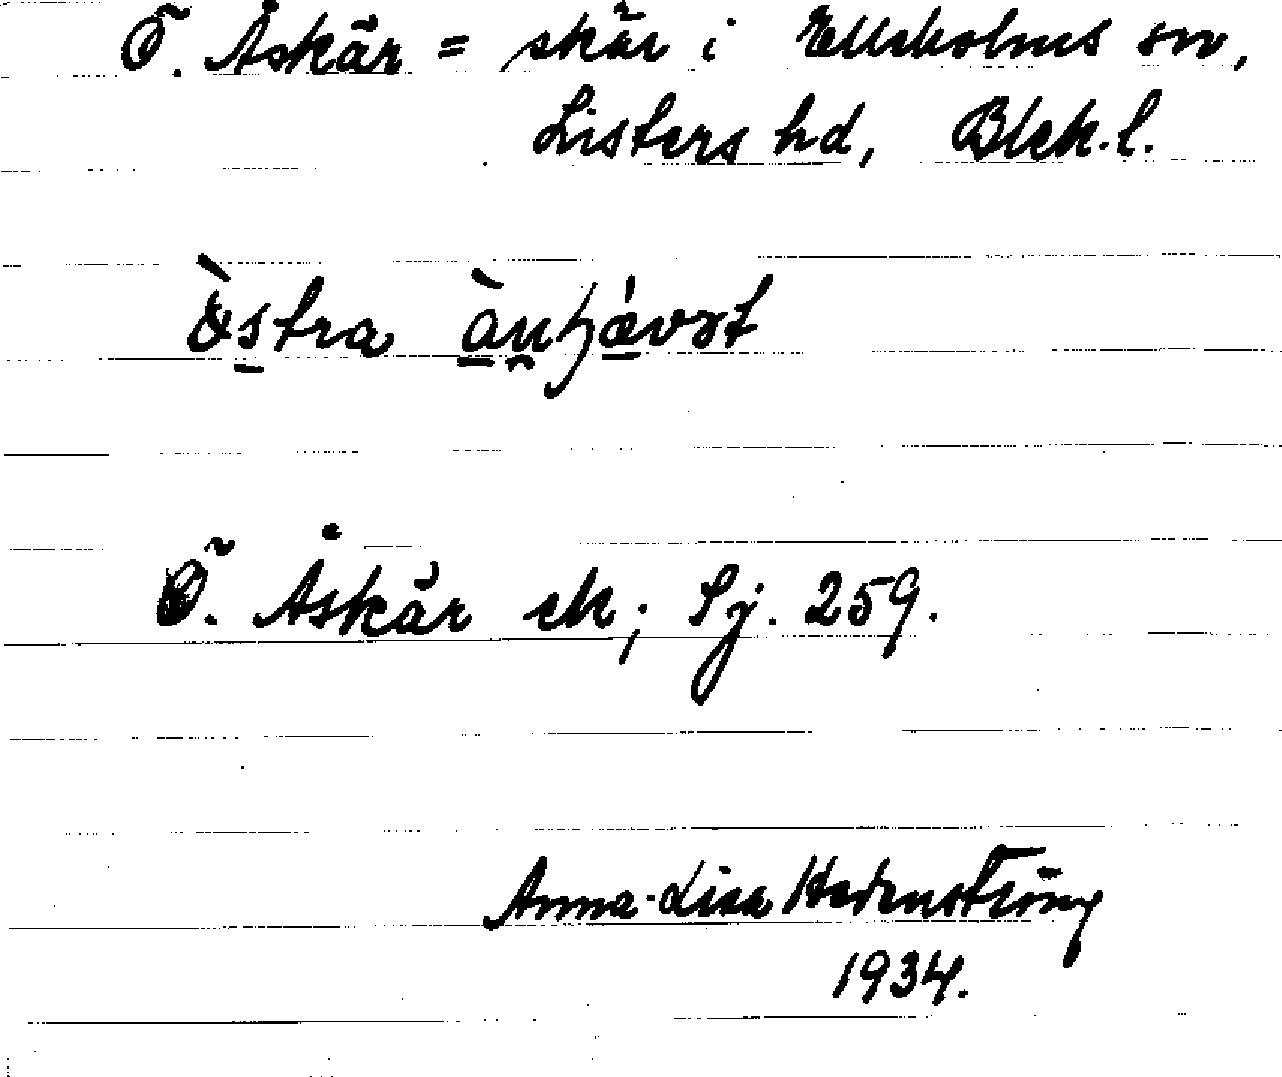 Ö. Åskär = skär i Elleholms sn,
Listers hd, Blek. l.
Östra
Ö. Åskär ek; Sj. 259.
Anna-Lisa Hedenström
1934.